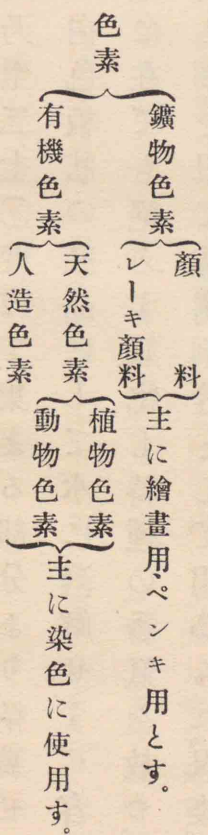 色素
鑛物色素
顔料
レーキ顔料
主に繪畫用、ペンキ用とす。
有機色素
天然色素
植物色素
動物色素
人造色素
主に染色に使用す。